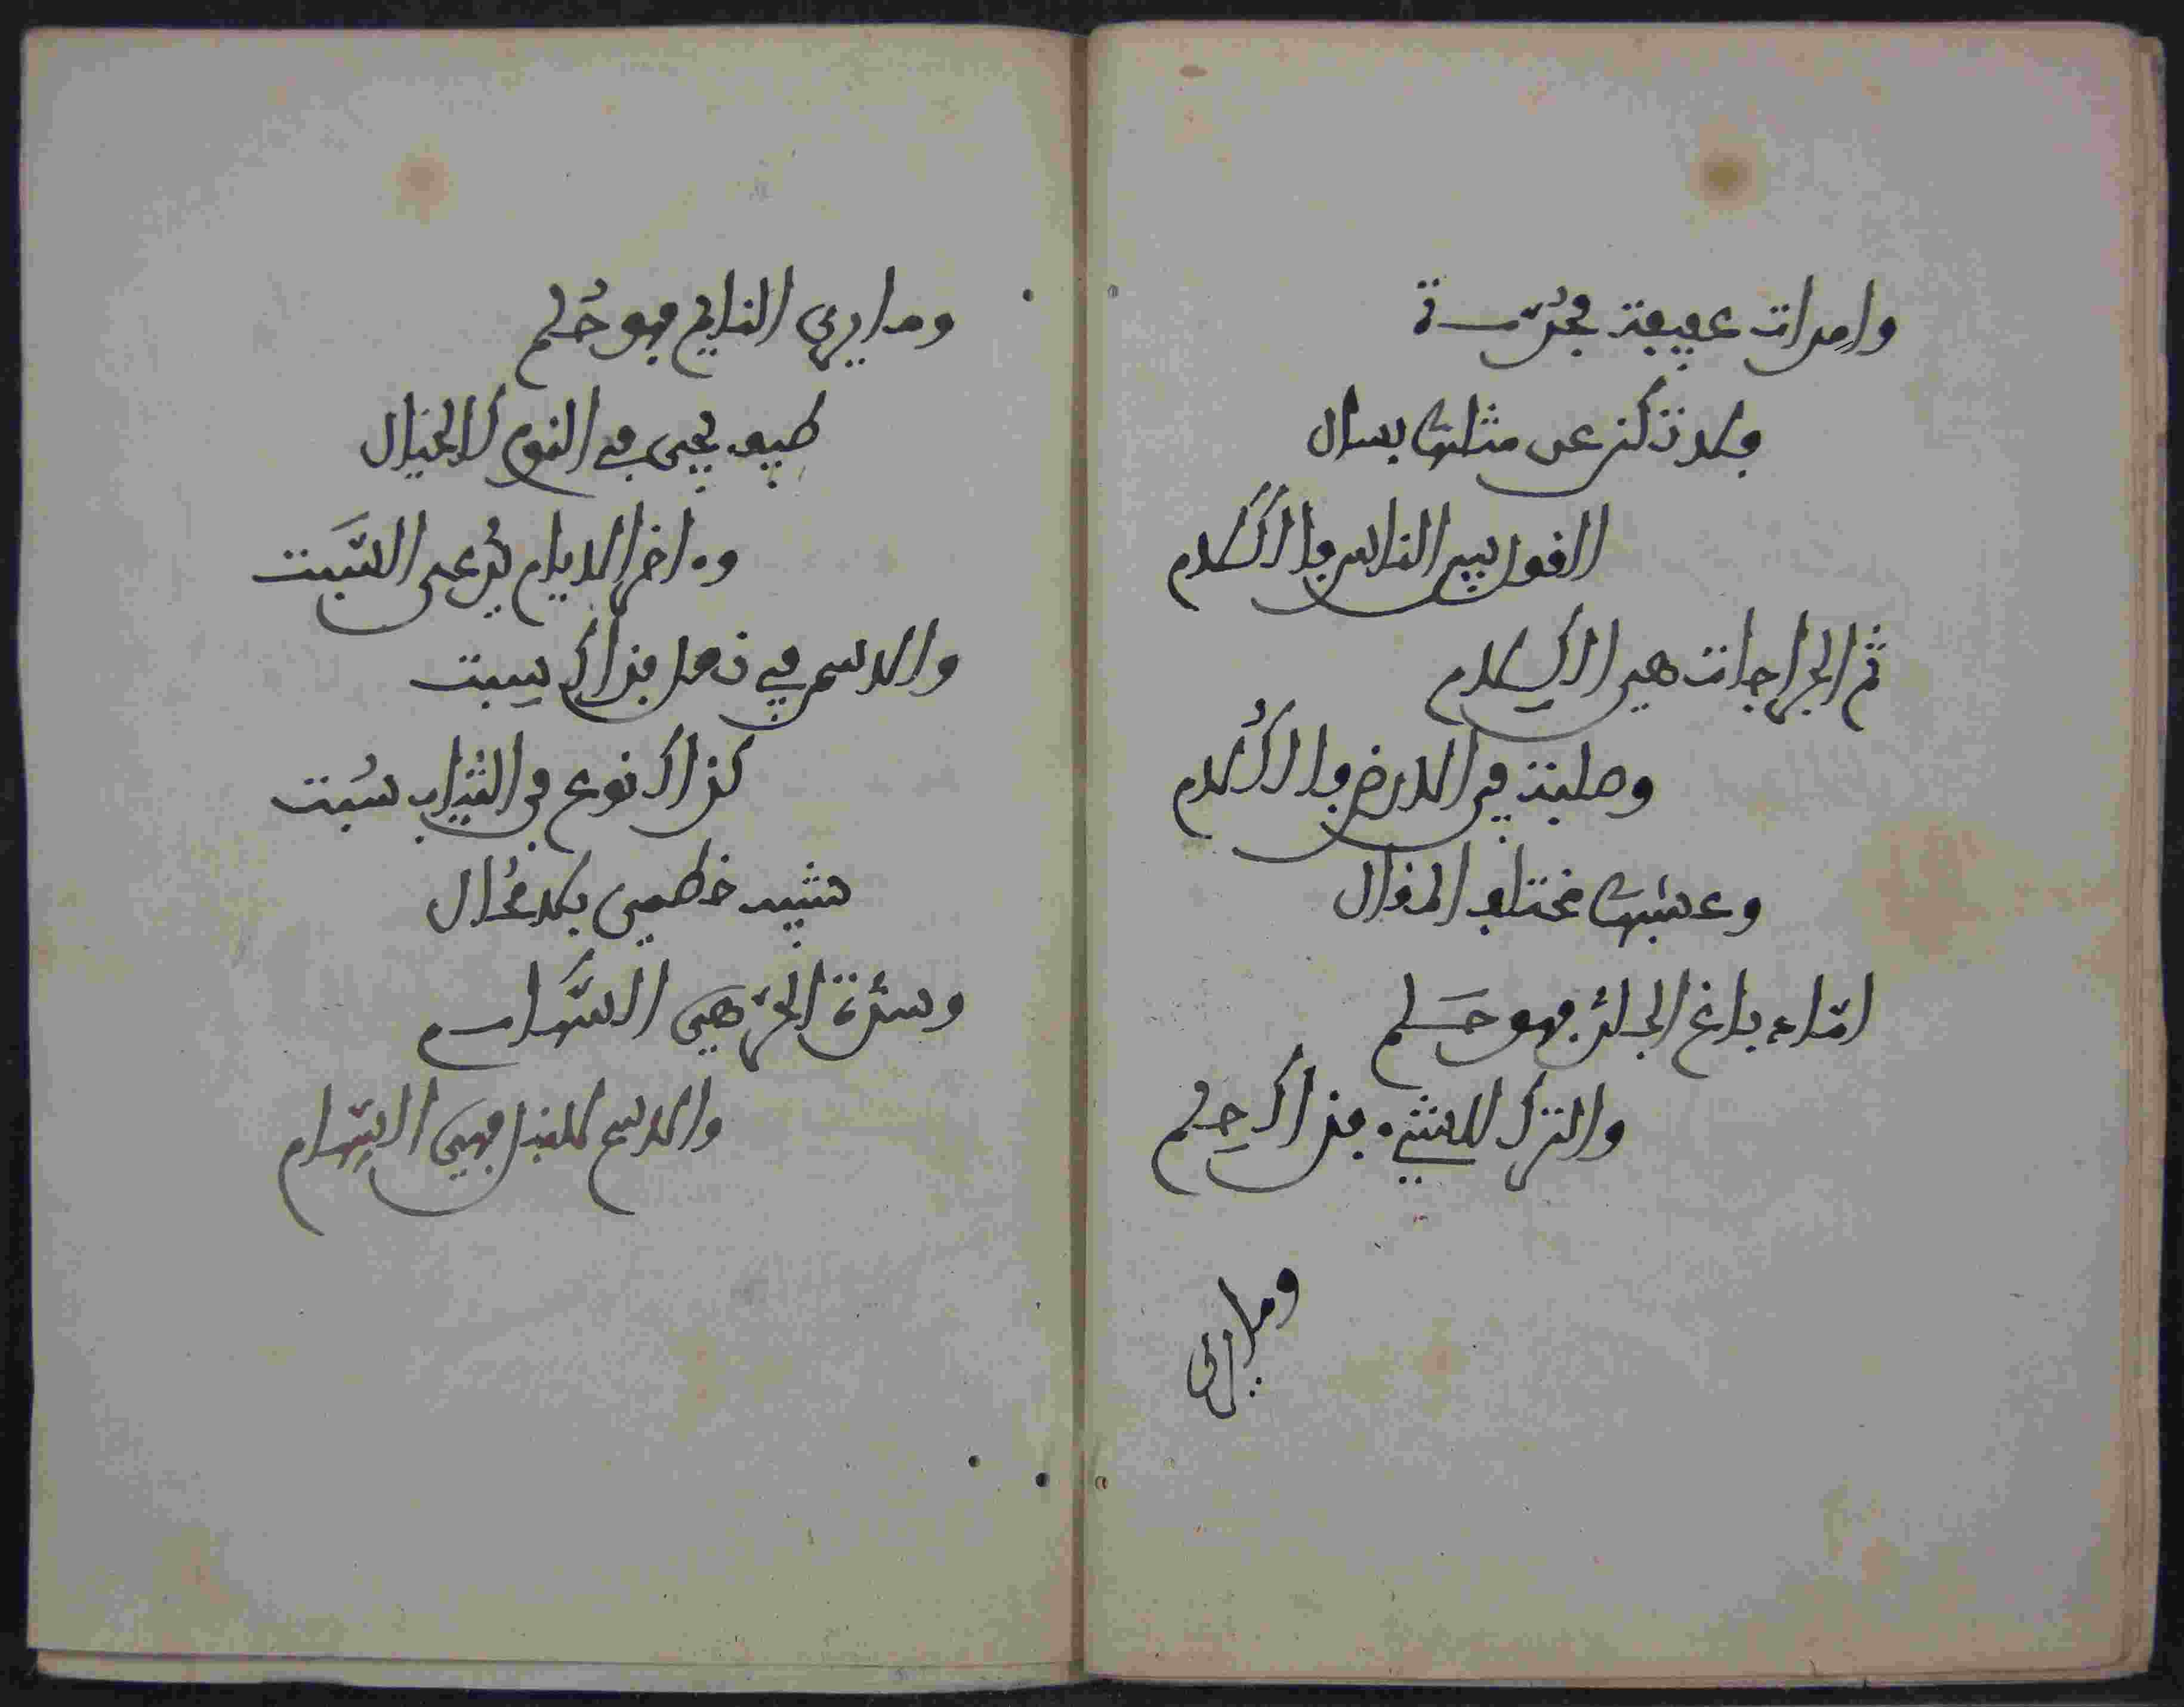 وامرات عفيفة فحُرّة
فلا تكن عن مثلها بسال
القول بين الناس فالكَلام
ثم الجراحات هي الكِلام
وصلبة في الارض فالكُلام
وعشبها مختلف المذال
امّا بالغ الجلد فهو حَلم
والترك للشيء فذاك حِلم
وما يرى
وما يرى النايم فهو حُلم
طيف يجي في النوم كالخيال
وءاخر الايام يُدعى السَّبت
والاسم في نعل فذاك سِبت
كذاك نوع في الثياب سُبت
شبيه خطمي بلا محُال
وشدّة الحرّ هي السَّهام
والاسم للنبل فهي السِّهام